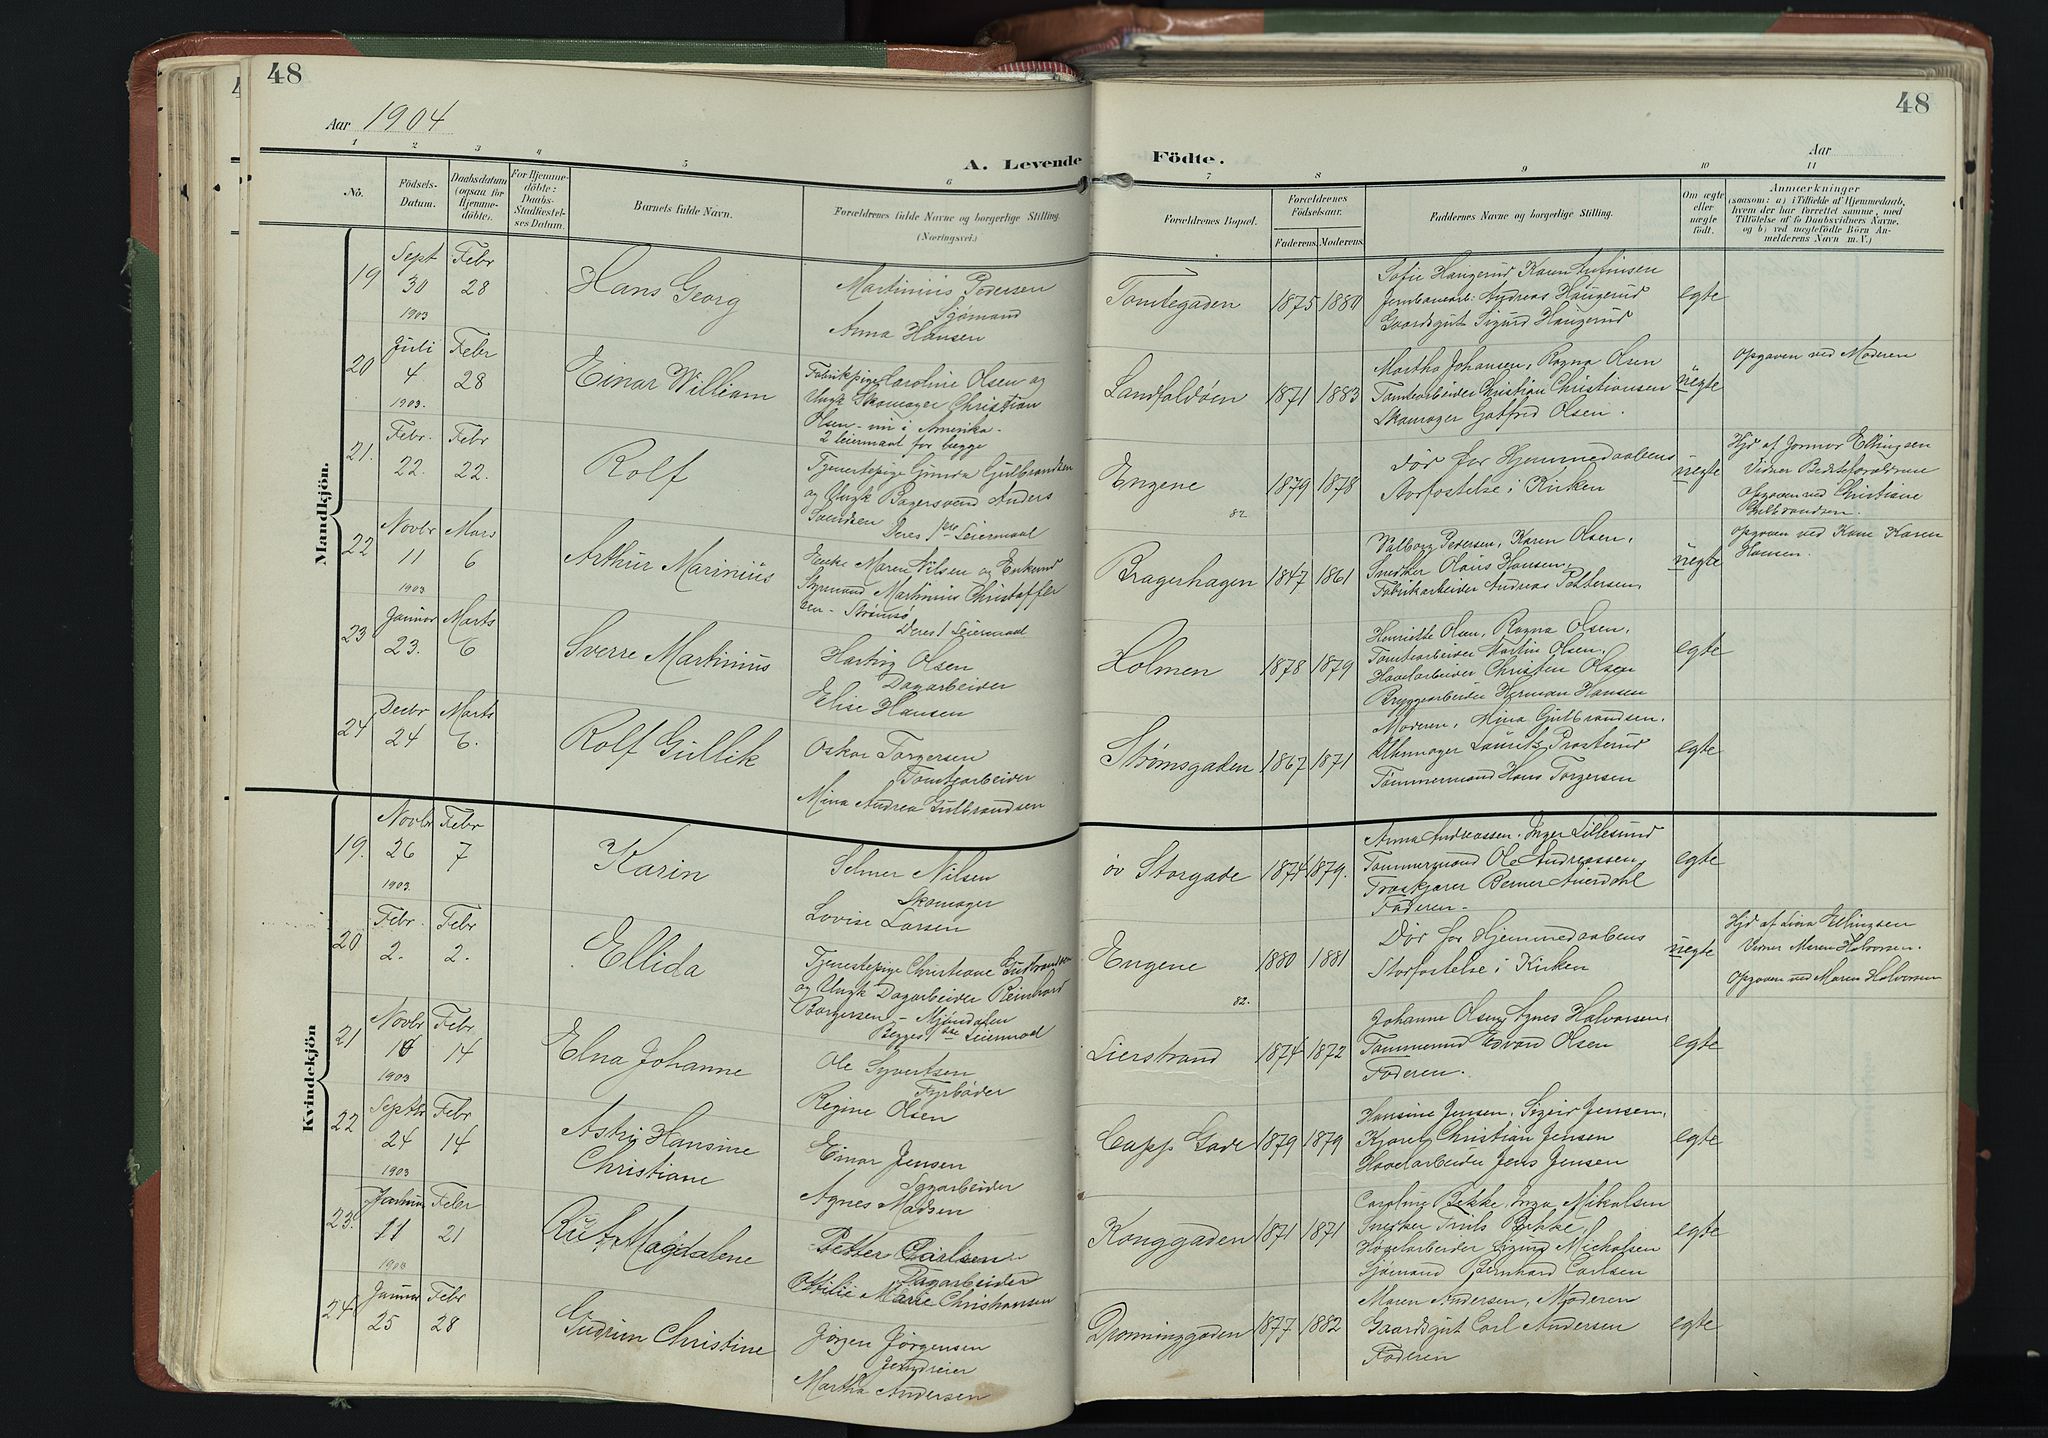 48
Aar 1904
A. Levende Födte.
48
Aar
1 2 3 4 5 6 7 8 9 10 11
No.
Födsels-Datum.
Daabsdatum (ogsaa for Hjemmedöbte).
For Hjemmedöbte: Daabs-Stadfæstelses Datum.
Barnets fulde Navn.
Forældrenes fulde Navne og borgerlige Stilling.
(Næringsvei.)
Forældrenes Bopæl.
Forældrenes Födselsaar.
Faderens. Moderens.
Faddernes Navne og borgerlige Stilling.
Om ægte eller uægte födt.
Anmærkninger
(saasom: a) i Tilfælde af Hjemmedaab, hvem der har forrettet samme, med Tilföielse af to Daabsvidners Navne, og b) ved uægtefödte Börn Anmelderens Navn m. V.)
Mandkjön.
19
Sept 30 1903
Febr 28
Hans Georg
Martinius Pedersen
Sjömand
Anna Hansen
Tomtegaden
1875 1880
Sofie Haugerud Karen Antinsen
Jernbanearb. Andreas Haugerud
Gaardsgut Sigurd Haugerud
egte
20
Juli 4 1903.
Febr 28
Einar William
Fabrikpige Caroline Olsen og
Ungk Skomager Christian
Olsen - nu i Amerika -
2 leiermaal for begge
Landfaldöen
1871 1883
Martha Johansen, Ragna Olsen
Tomtearbeider Christian Christiansen
Skomager Gotfred Olsen.
uegte
Opgaven ved Moderen
21.
Febr. 22.
Febr 22.
Rolf
Tjenestepige Gunda Gulbrandsen
og Ungk Bagersvend Anders
Svendsen
Deres 1ste Leiermaal
Engene
82
1879 1878
Dör för Hjemmedaabens
Stadfæstelse i Kirken
uegte
Hjd af Jormor Ellingsen
Vidner Bedsteforældrene
Opgaven ved Christiane
Gulbrandsen.
22
Novbr 11 1903
Mars 6
Arthur Marinius
Enke Maren Nilsen og Enkemd
Styrmand Martinius Christoffer
sen - Strömsö
Deres 1 Leiermaal
Bragerhagen
1847 1861
Valborg Pedersen, Karen Olsen,
Snedker Olaus Hansen,
Fabrikarbeider Andreas Pettersen,
uegte
Opgaven ved Kone Karen
Hansen.
23
Januar 23.
Marts 6
Sverre Martinius
Hartvig Olsen
Dagarbeider
Elise Hansen
Holmen
1878 1879
Henriette Olsen, Ragna Olsen,
Tomtearbeider Martin Olsen,
Hövelarbeider Christen Olsen
Bryggearbeider Herman Hansen
egte
24
Decbr 24
Marts 6.
Rolf Gullik
Oskar Torgersen
Tomtearbeider
Mina Andrea Gulbrandsen
Strömsgaden
1867 1871
Moderen, Mina Gulbrandsen,
Uhrmager Lauritz Prosterud
Tömmermand Hans Torgersen
egte
Kvindekjön
19.
Novbr 26 1903
Febr 7
Karin
Selmer Nilsen
Skomager
Lovise Larsen
öv Storgade
1874 1879.
Anna Andreassen, Inger Lillesund
Tömmermand Ole Andreassen,
Træskjærer Berner
Faderen.
egte
20
Febr. 2.
Febr 2.
Ellida
Tjenestepige Christiane Gulbrandsen
og Ungk Dagarbeider Reinhard
Borgersen - Mjöndalen
Begges 1ste Leiermaal
Engene
82.
1880 1881
Dör för Hjemmedaabens
Stadfæstelse i Kirken
uegte
Hjd af Lina Ellingsen
Vidner Maren Halvorsen.
Opgaven ved Maren Halvorsen
21
Novbr 16 1903
Febr 14
Elna Johanne
Ole Syvertsen
Fyrböder
Regine Olsen
Lierstrand
1874 1872
Johanne Olsen, Agnes Halvorsen,
Tömmermd Edvard Olsen
Faderen.
egte
22
Septbr 24 1903
Febr 14
Astrid Hansine
Christiane
Einar Jensen
Sagarbeider
Agnes Madsen
Capp. Gade
1879 1879
Hansine Jensen, Sigrid Jensen,
Kjörer Christian Jensen
Hövelarbeider Jens Jensen
egte
23.
Januar 11 1903
Febr 21
Ruth Magdalene
Petter Carlsen
Dagarbeider
Ottilie Marie Christiansen
Konggaden
1871 1871
Caroline Bekke, Inga Mikalsen
Snedker Truls Bekke,
Hövelarbeider Sigurd Michalsen
Sjömand Bernhard Carlsen
egte
24
Januar 25
Febr 28
Gudrun Christine
Jörgen Jörgensen
Jerndreier
Martha Andersen
Dronninggaden
1877 1882
Maren Andersen, Moderen
Gaardsgut Carl Andersen
Faderen
egte